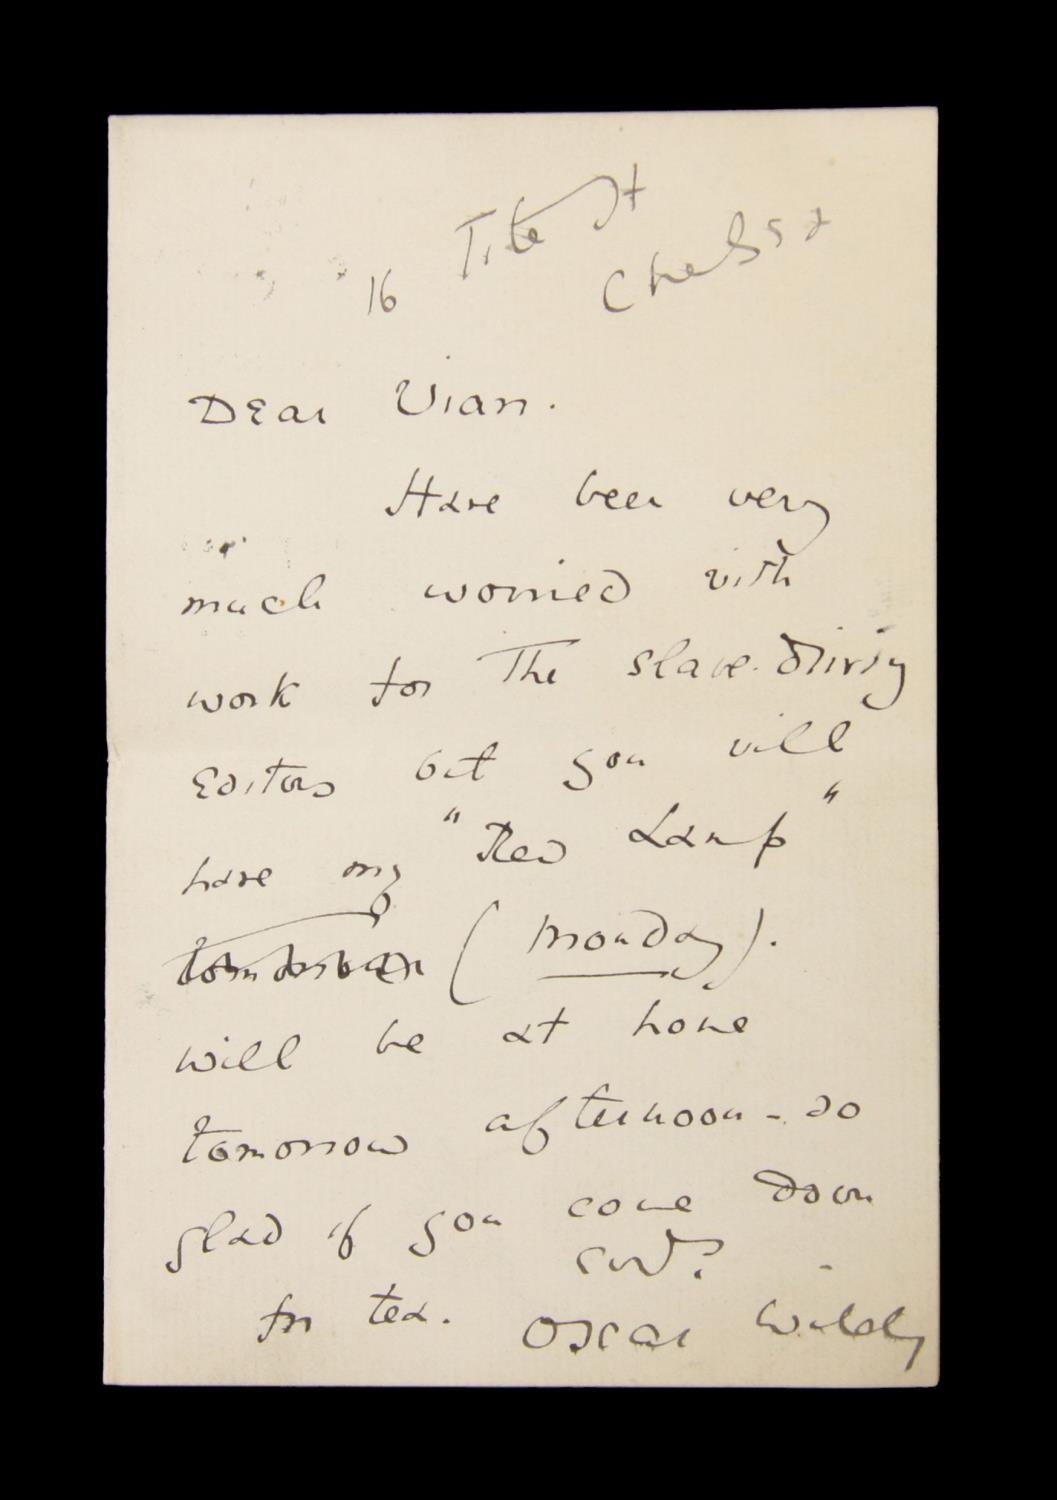 16 Tite St
Chelsea
Dear Vian.
Have been very
much worried with
work for the slave-driving
Editors but you will
have my "Red Lamp"
tomorrow (Monday).
will be at home
tomorrow afternoon - so
glad if you come down
for tea.
Oscar Wilde